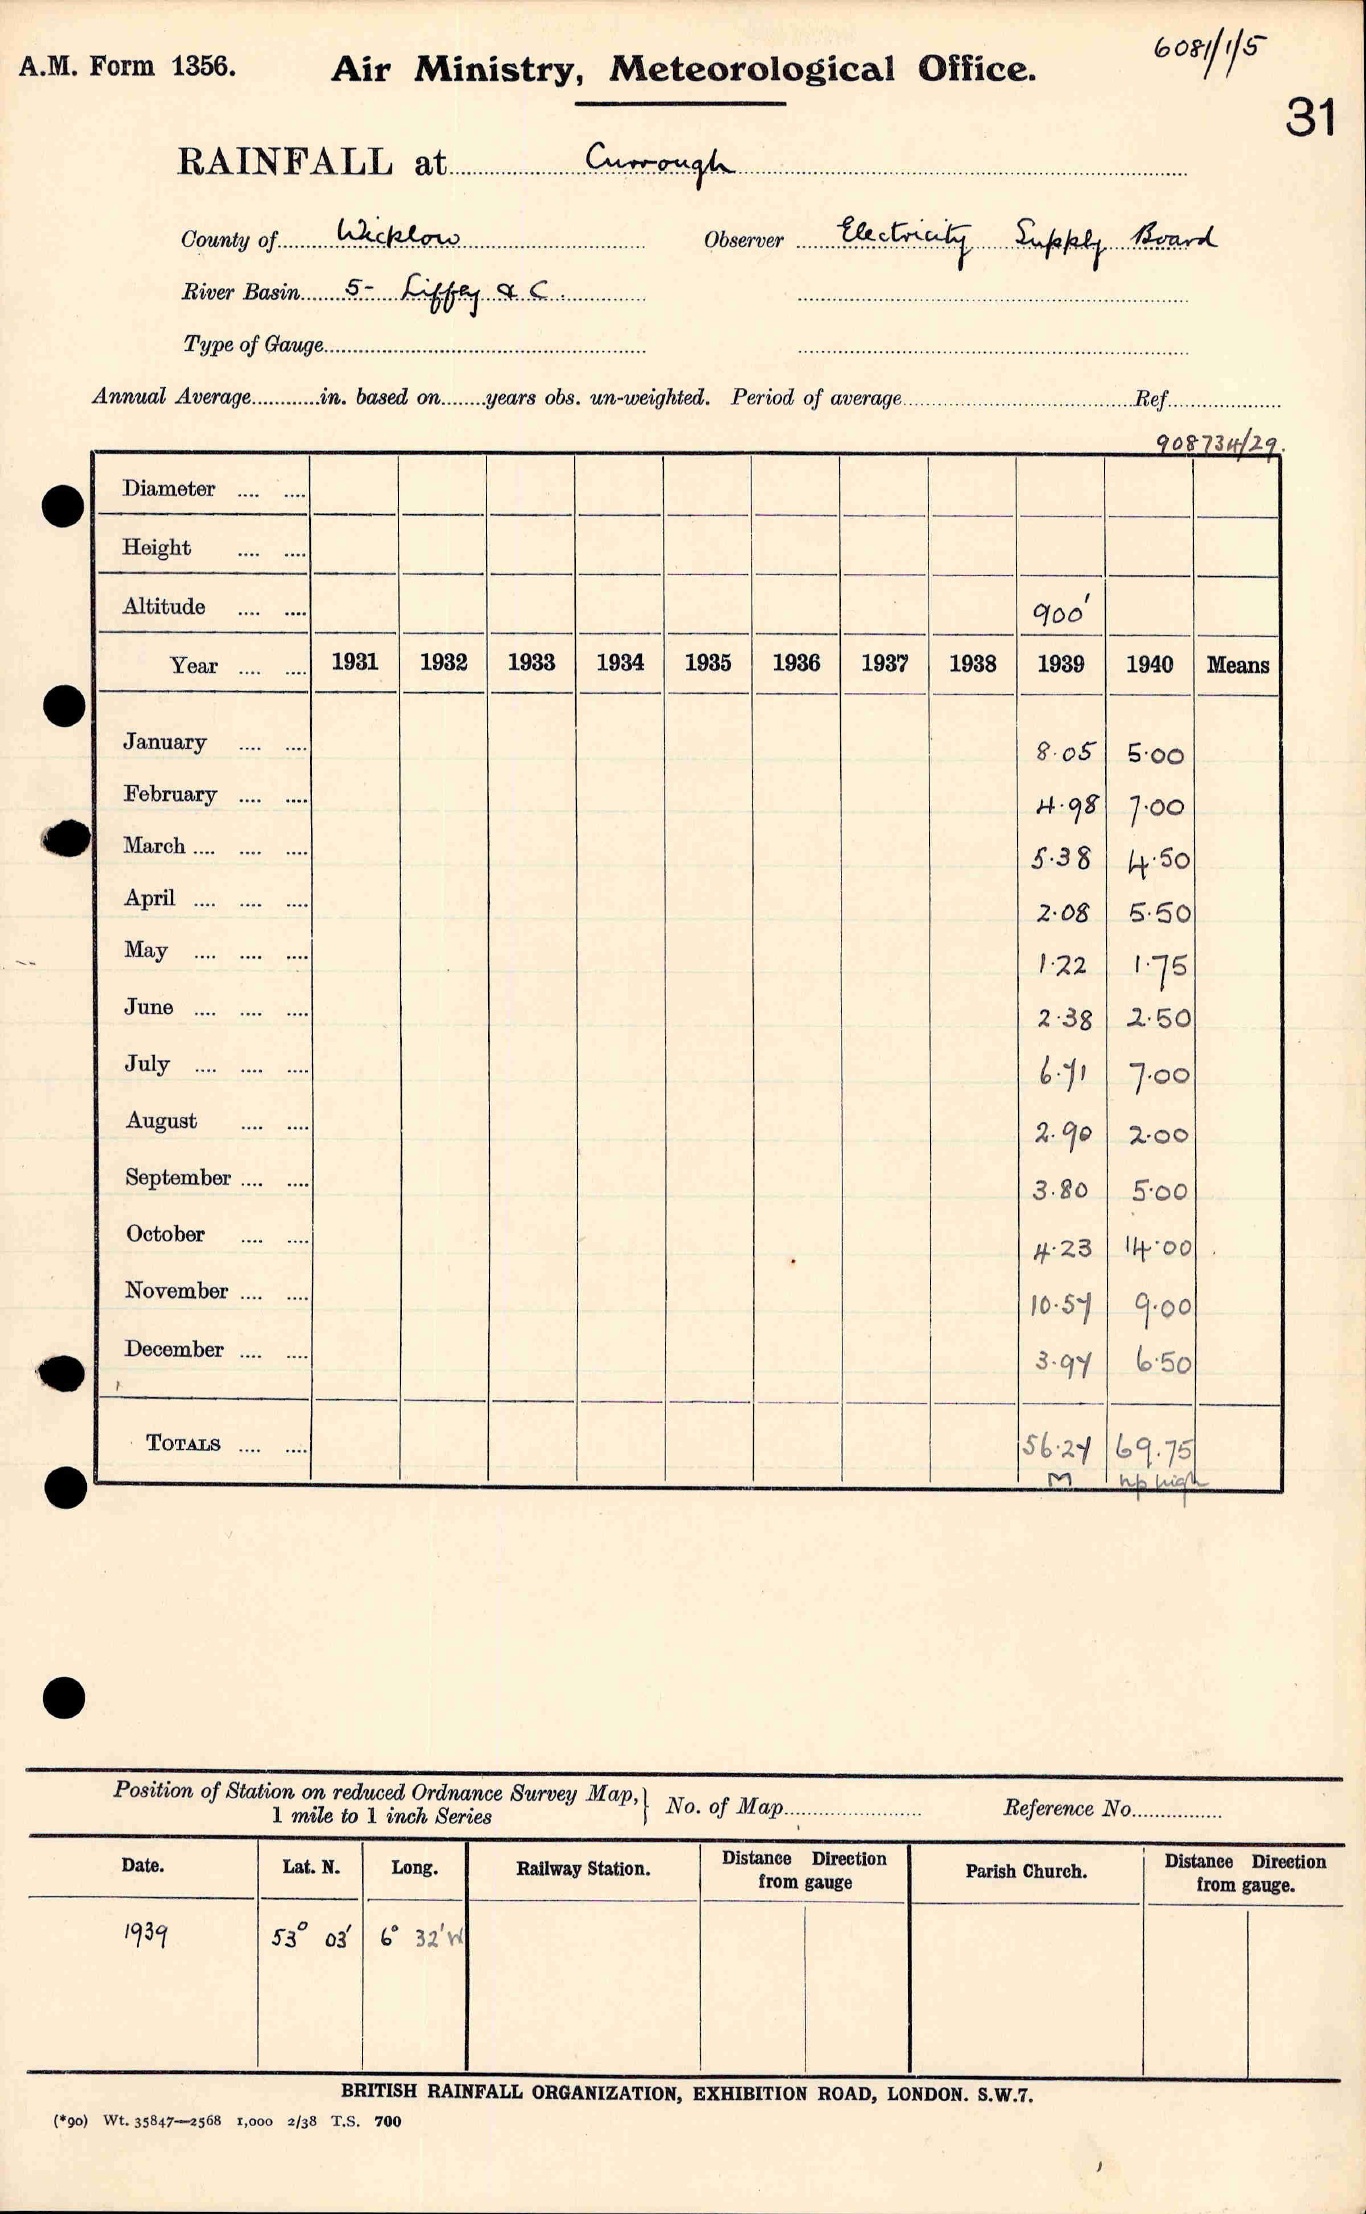 6081/1/5
A.M. Form 1356. Air Ministry, Meteorological Office.
31
RAINFALL at Currough
County of Wicklow Observer Electricity Supply Board
River Basin 5- Liffey & C.
Type of Gauge
Annual Average............in. based on........years obs. un-weighted. Period of average Ref
908734/29.
Diameter .... ....
Height .... ....
Altitude .... .... 900'
Year .... .... 1931 1932 1933 1934 1935 1936 1937 1938 1939 1940 Means
January .... .... 8.05 5.00
February .... .... 4.98 7.00
March .... .... .... 5.38 4.50
April .... .... .... 2.08 5.50
May .... .... .... 1.22 1.75
June .... .... .... 2.38 2.50
July .... .... .... 6.71 7.00
August .... .... 2.90 2.00
September .... .... 3.80 5.00
October .... .... 4.23 14.00
November .... .... 10.57 9.00
December .... .... 3.97 6.50
TOTALS .... .... 56.27 69.75
M high
Position of Station on reduced Ordnance Survey Map,} No. of Map Reference No.
1 mile to 1 inch Series
Date. Lat. N. Long. Railway Station. Distance Direction from gauge Parish Church. Distance Direction from gauge.
1939 53° 03' 6° 32'W
BRITISH RAINFALL ORGANIZATION, EXHIBITION ROAD, LONDON. S.W.7.
(*90) Wt. 35847—2568 1,000 2/38 T.S. 700